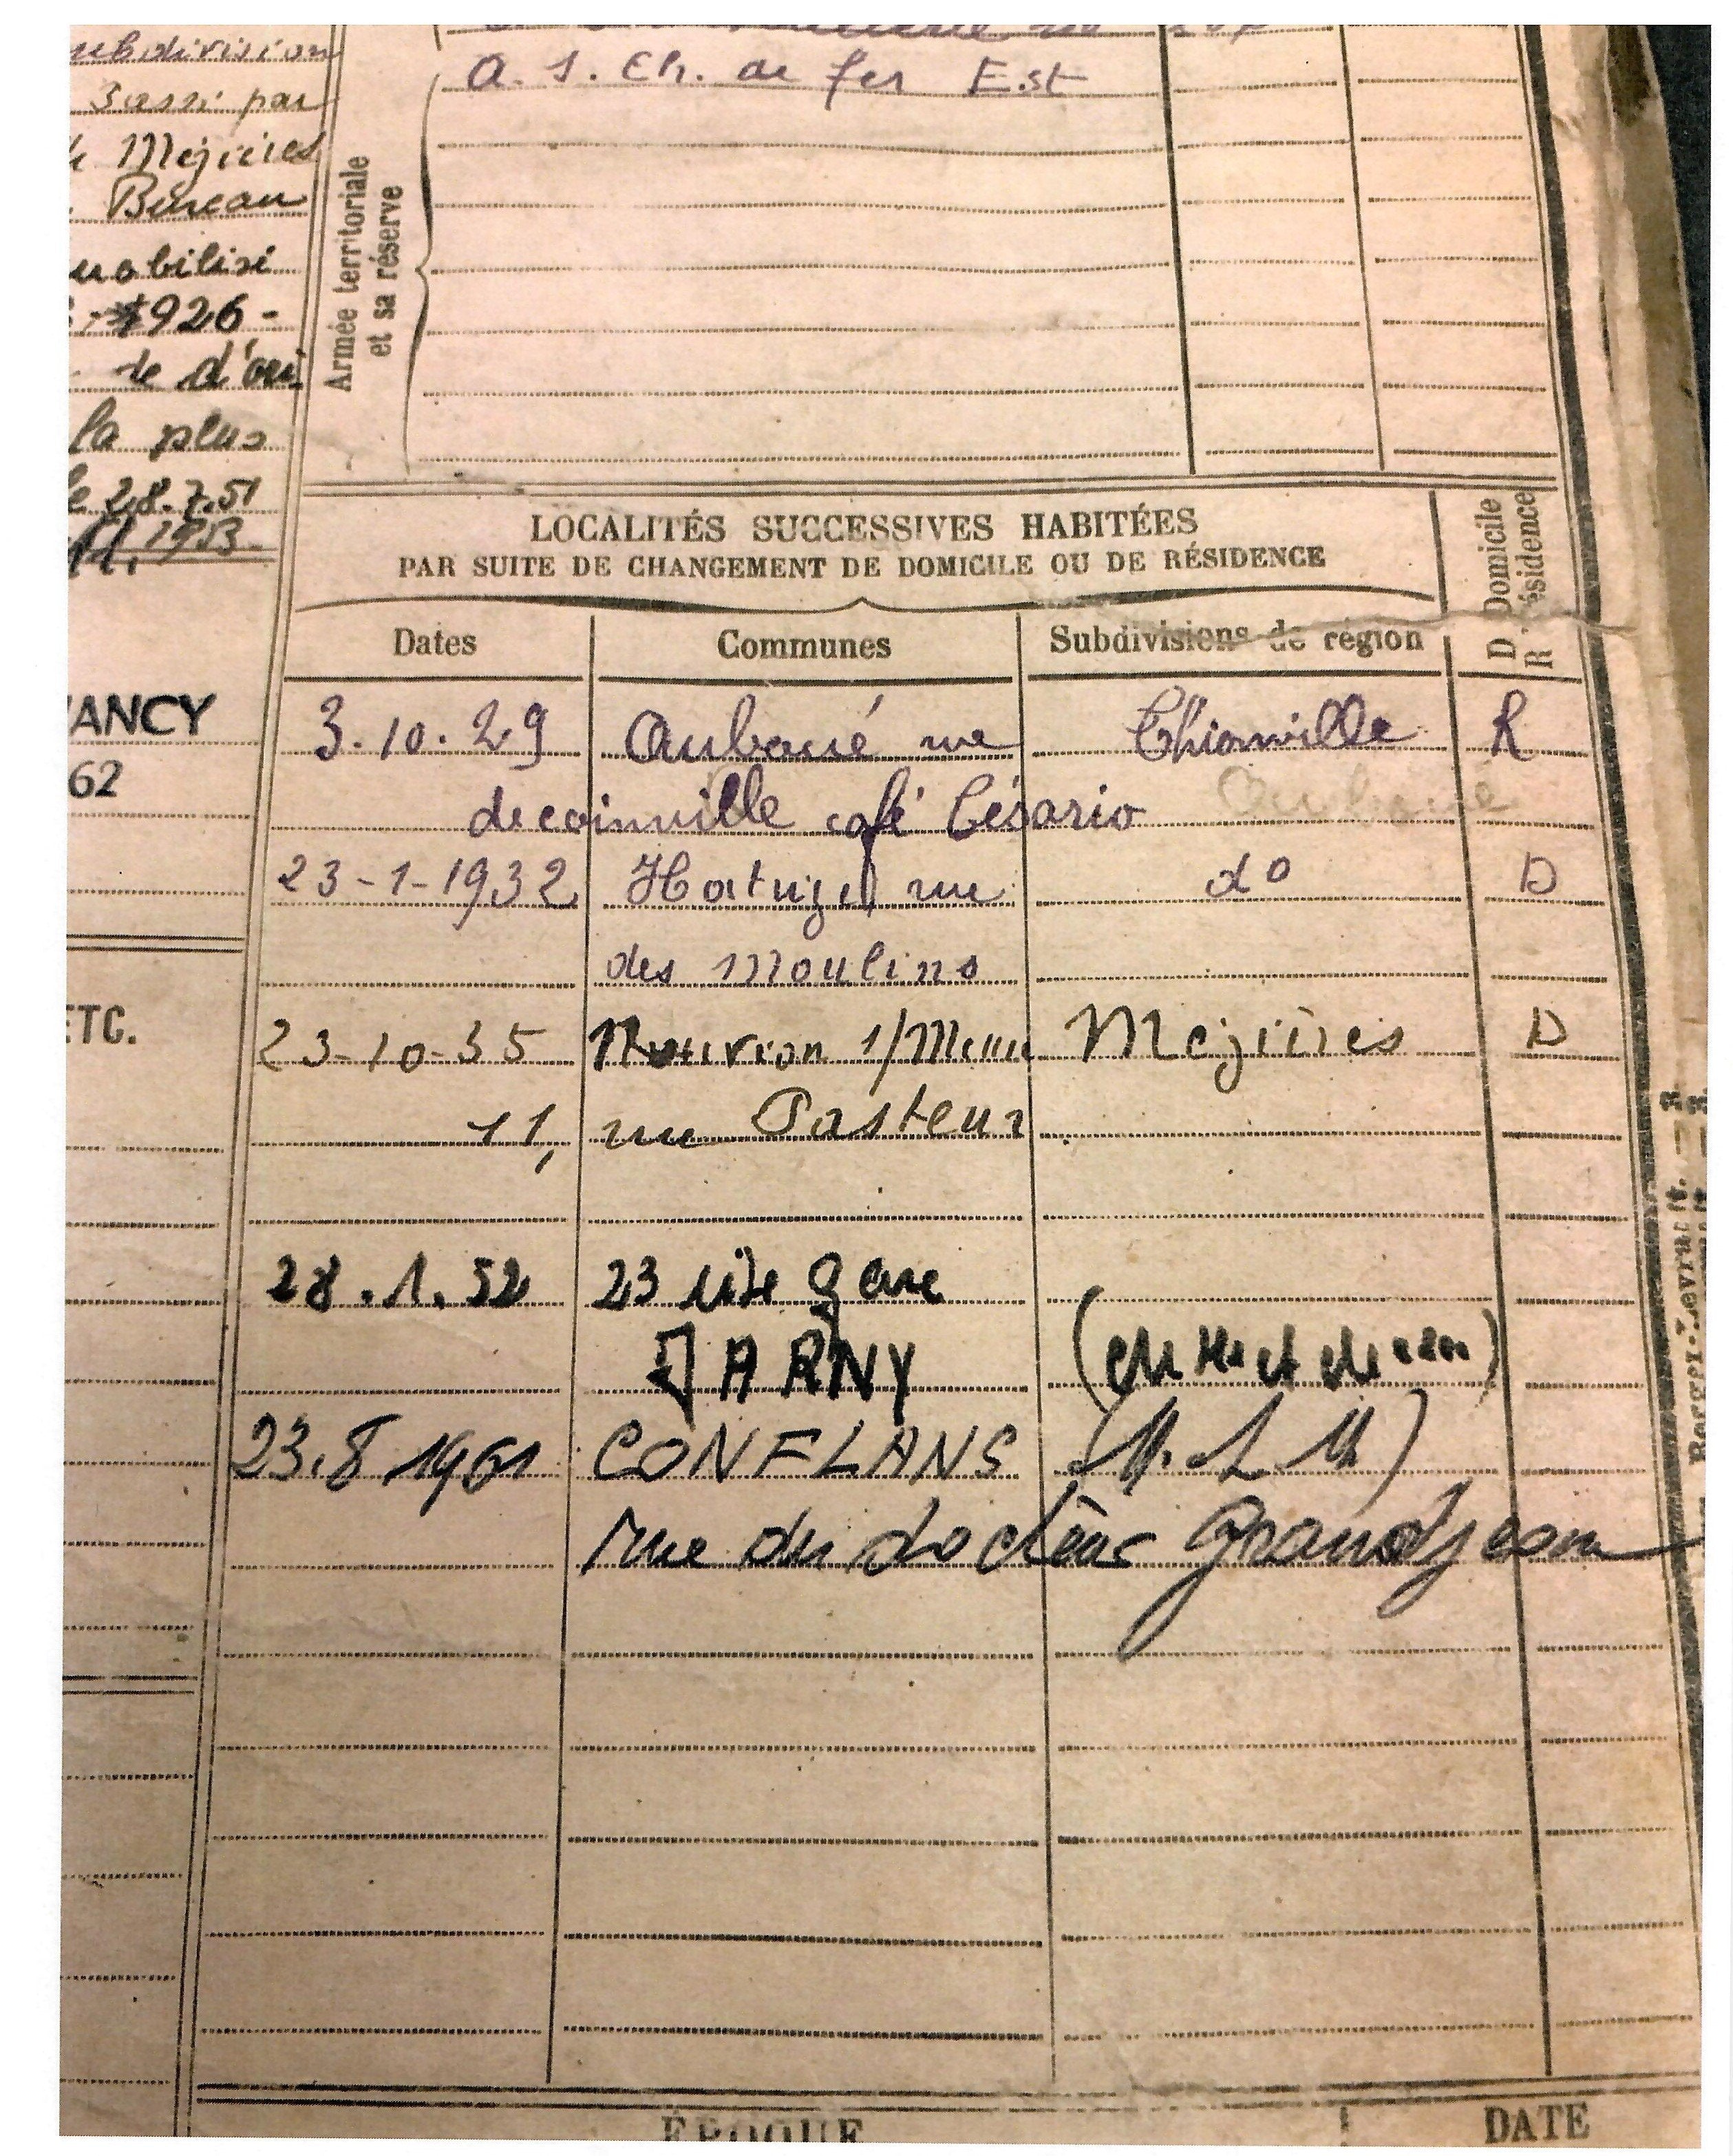 subdivision
par
Mézières
Bureau
mobilisé
1926 -
te d'ori
la plus
le 28.7.51
11.1953
ANCY
62
ETC.
A. S. Ch. de fer Est
Armée territoriale
et sa réserve
LOCALITÉS SUCCESSIVES HABITÉES
PAR SUITE DE CHANGEMENT DE DOMICILE OU DE RÉSIDENCE
D Domicile
R ésidence
Dates Communes Subdivisions de région
3.10.29 Auboué rue Thionville R
de coinville café Césario Auboué
23-1-1932 Hatrize rue do D
des Moulins
23-10-35 Nouvion s/Meuse Mézières D
11, rue Pasteur
28.1.52 23 cité gare
JARNY
23.8 1961 CONFLANS (M. & M)
rue du docteur Grandjean
Berger-Levrault.
ÉPOQUE DATE